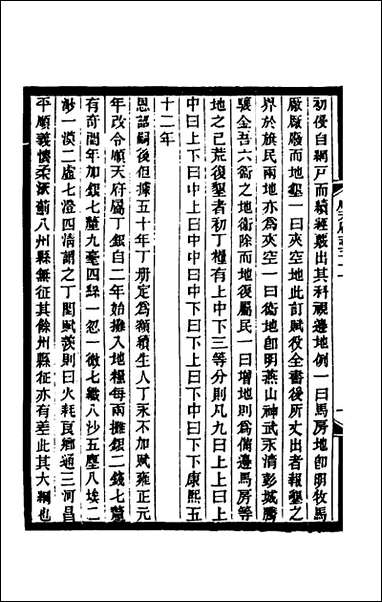 初優自網戸而續經裁出其科視邊地例一曰馬房地卽明牧馬
廠廠廢而地墾一曰夾空地此訂賦役全書後所丈出者報墾之
界於旗民兩地亦爲夾空一曰衞地卽明燕山神武永清彭城騰
驤金吾六衞之地衞除而地復屬民一曰增地則爲備邊馬房等
地之已荒復墾者初丁糧有上中下三等分則凡九曰上上曰上
中曰上下曰中上曰中中曰中下曰下上曰下中曰下下康熙五
十二年
恩詔嗣後但據五十年丁册定爲額續生人丁永不加賦雍正元
年改令順天府屬丁銀自二年始攤入地糧每兩攤銀二錢七釐
有奇閏年加銀七釐九毫四絲一忽一微七纖八沙五塵八埃二
渺一漠二虛七澄四淸謂之丁閏賦羨則曰火耗良鄉通三河昌
平順義懷柔涿薊八州縣無征其餘州縣征亦有差此其大綱也